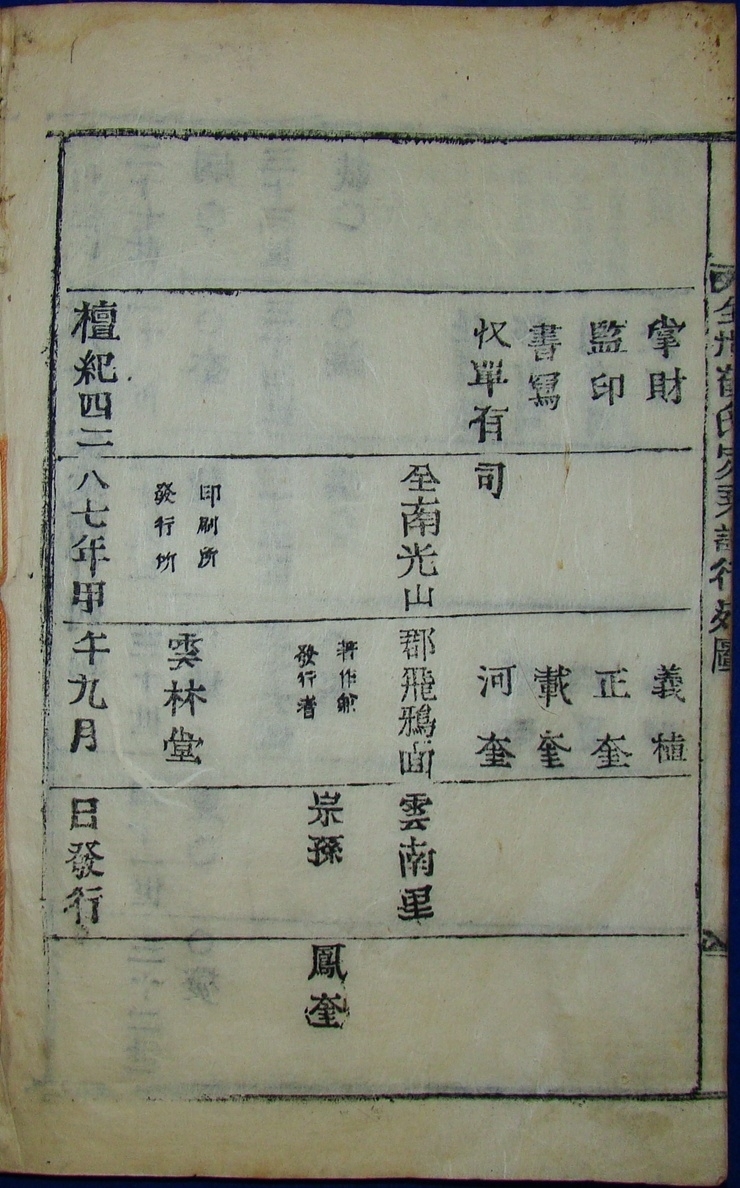 全州崔氏家乘譜行列圖
掌財 義植
監印 正奎
書寫 載奎
收單有司 河奎
全南光山郡飛鴉面雲南里
著作兼
發行者 宗孫 鳳奎
印刷所
發行所 雲林堂
檀紀四二八七年甲午九月 日發行